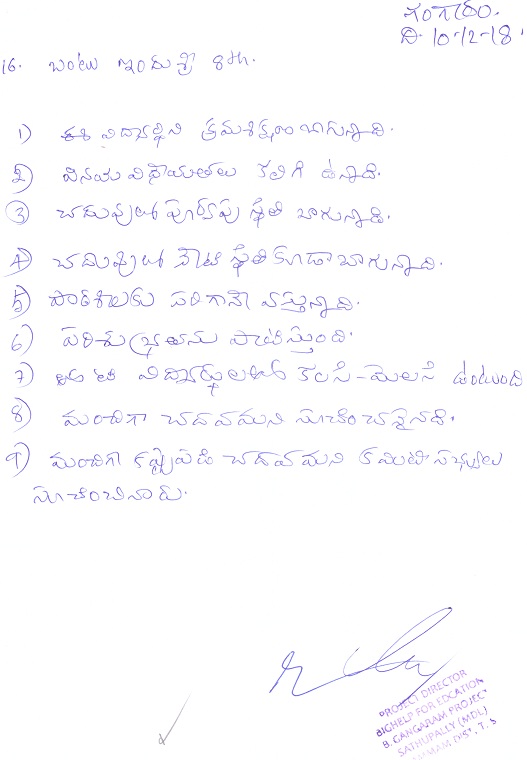 గంగారం.
ది 10-12-18.
16. బంటు ఇందుశ్రీ 8th.
1) ఈ విద్యార్థిని క్రమశిక్షణ బాగున్నది.
2) వినయ విధేయతలు కలిగి ఉన్నది.
3) చదువులో పూర్వపు స్థితి బాగున్నది.
4) చదువులో నేటి స్థితి కూడా బాగున్నది.
5) పాఠశాలకు సరిగానే వస్తున్నది.
6) పరిశుభ్రతను పాటిస్తుంది.
7) తోటి విద్యార్థులతో కలసి-మెలసి ఉంటుంది
8) మంచిగా చదవమని సూచించనైనది.
9) మంచిగా కష్టపడి చదవమని కమిటి సభ్యులు
సూచించినారు.
PROJECT DIRECTOR
BIGHELP FOR EDCATION
B. GANGARAM PROJECT
SATHUPALLY (MDL)
DIST. T.S